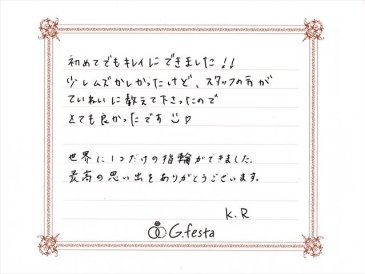 初めてでもキレイにできました!!
少しムズかしかったけど、スタッフの方が
ていねいに教えて下さったので
とても良かったです
世界に1つだけの指輪ができました。
最高の思い出をありがとうございます。
K.R
G.festa